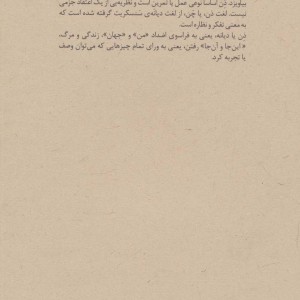 بیاویزد. ذِن اساساً نوعی عمل یا تمرین است و نظریه‌یی از یک اعتقاد جزمی
نیست. لغت ذن، یا چَن، از لغت دیانه‌ی سَنسکریت گرفته شده است که
به معنی تفکر و نظاره است.
ذِن یا دیانه، یعنی به فراسوی اضداد «من» و «جهان»، زندگی و مرگ،
«این‌جا و آن‌جا» رفتن، یعنی به ورای تمام چیزهایی که می‌توان وصف
یا تجربه کرد.